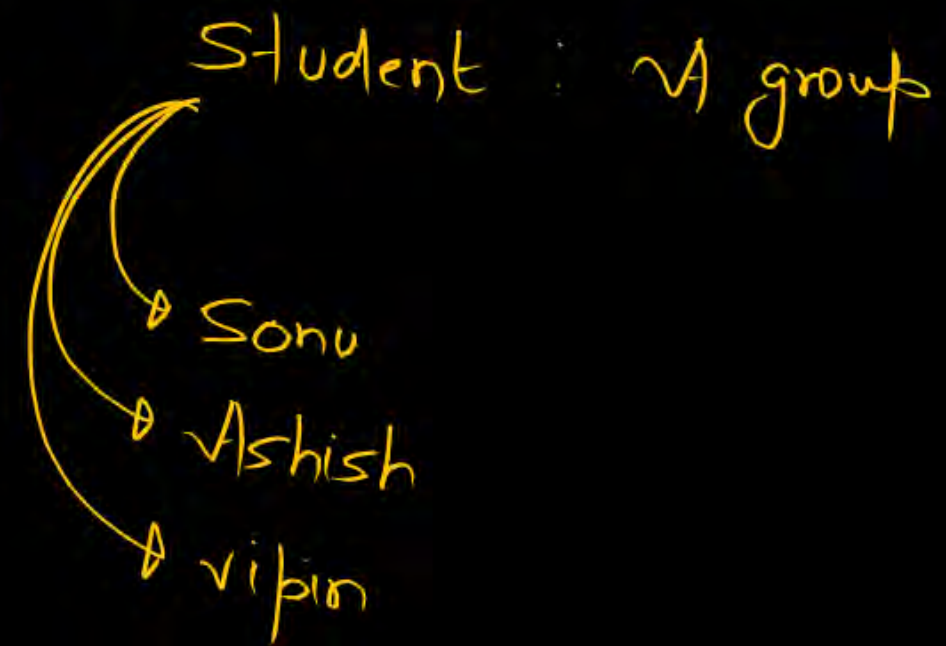 Student : A group
Sonu
Ashish
vipin